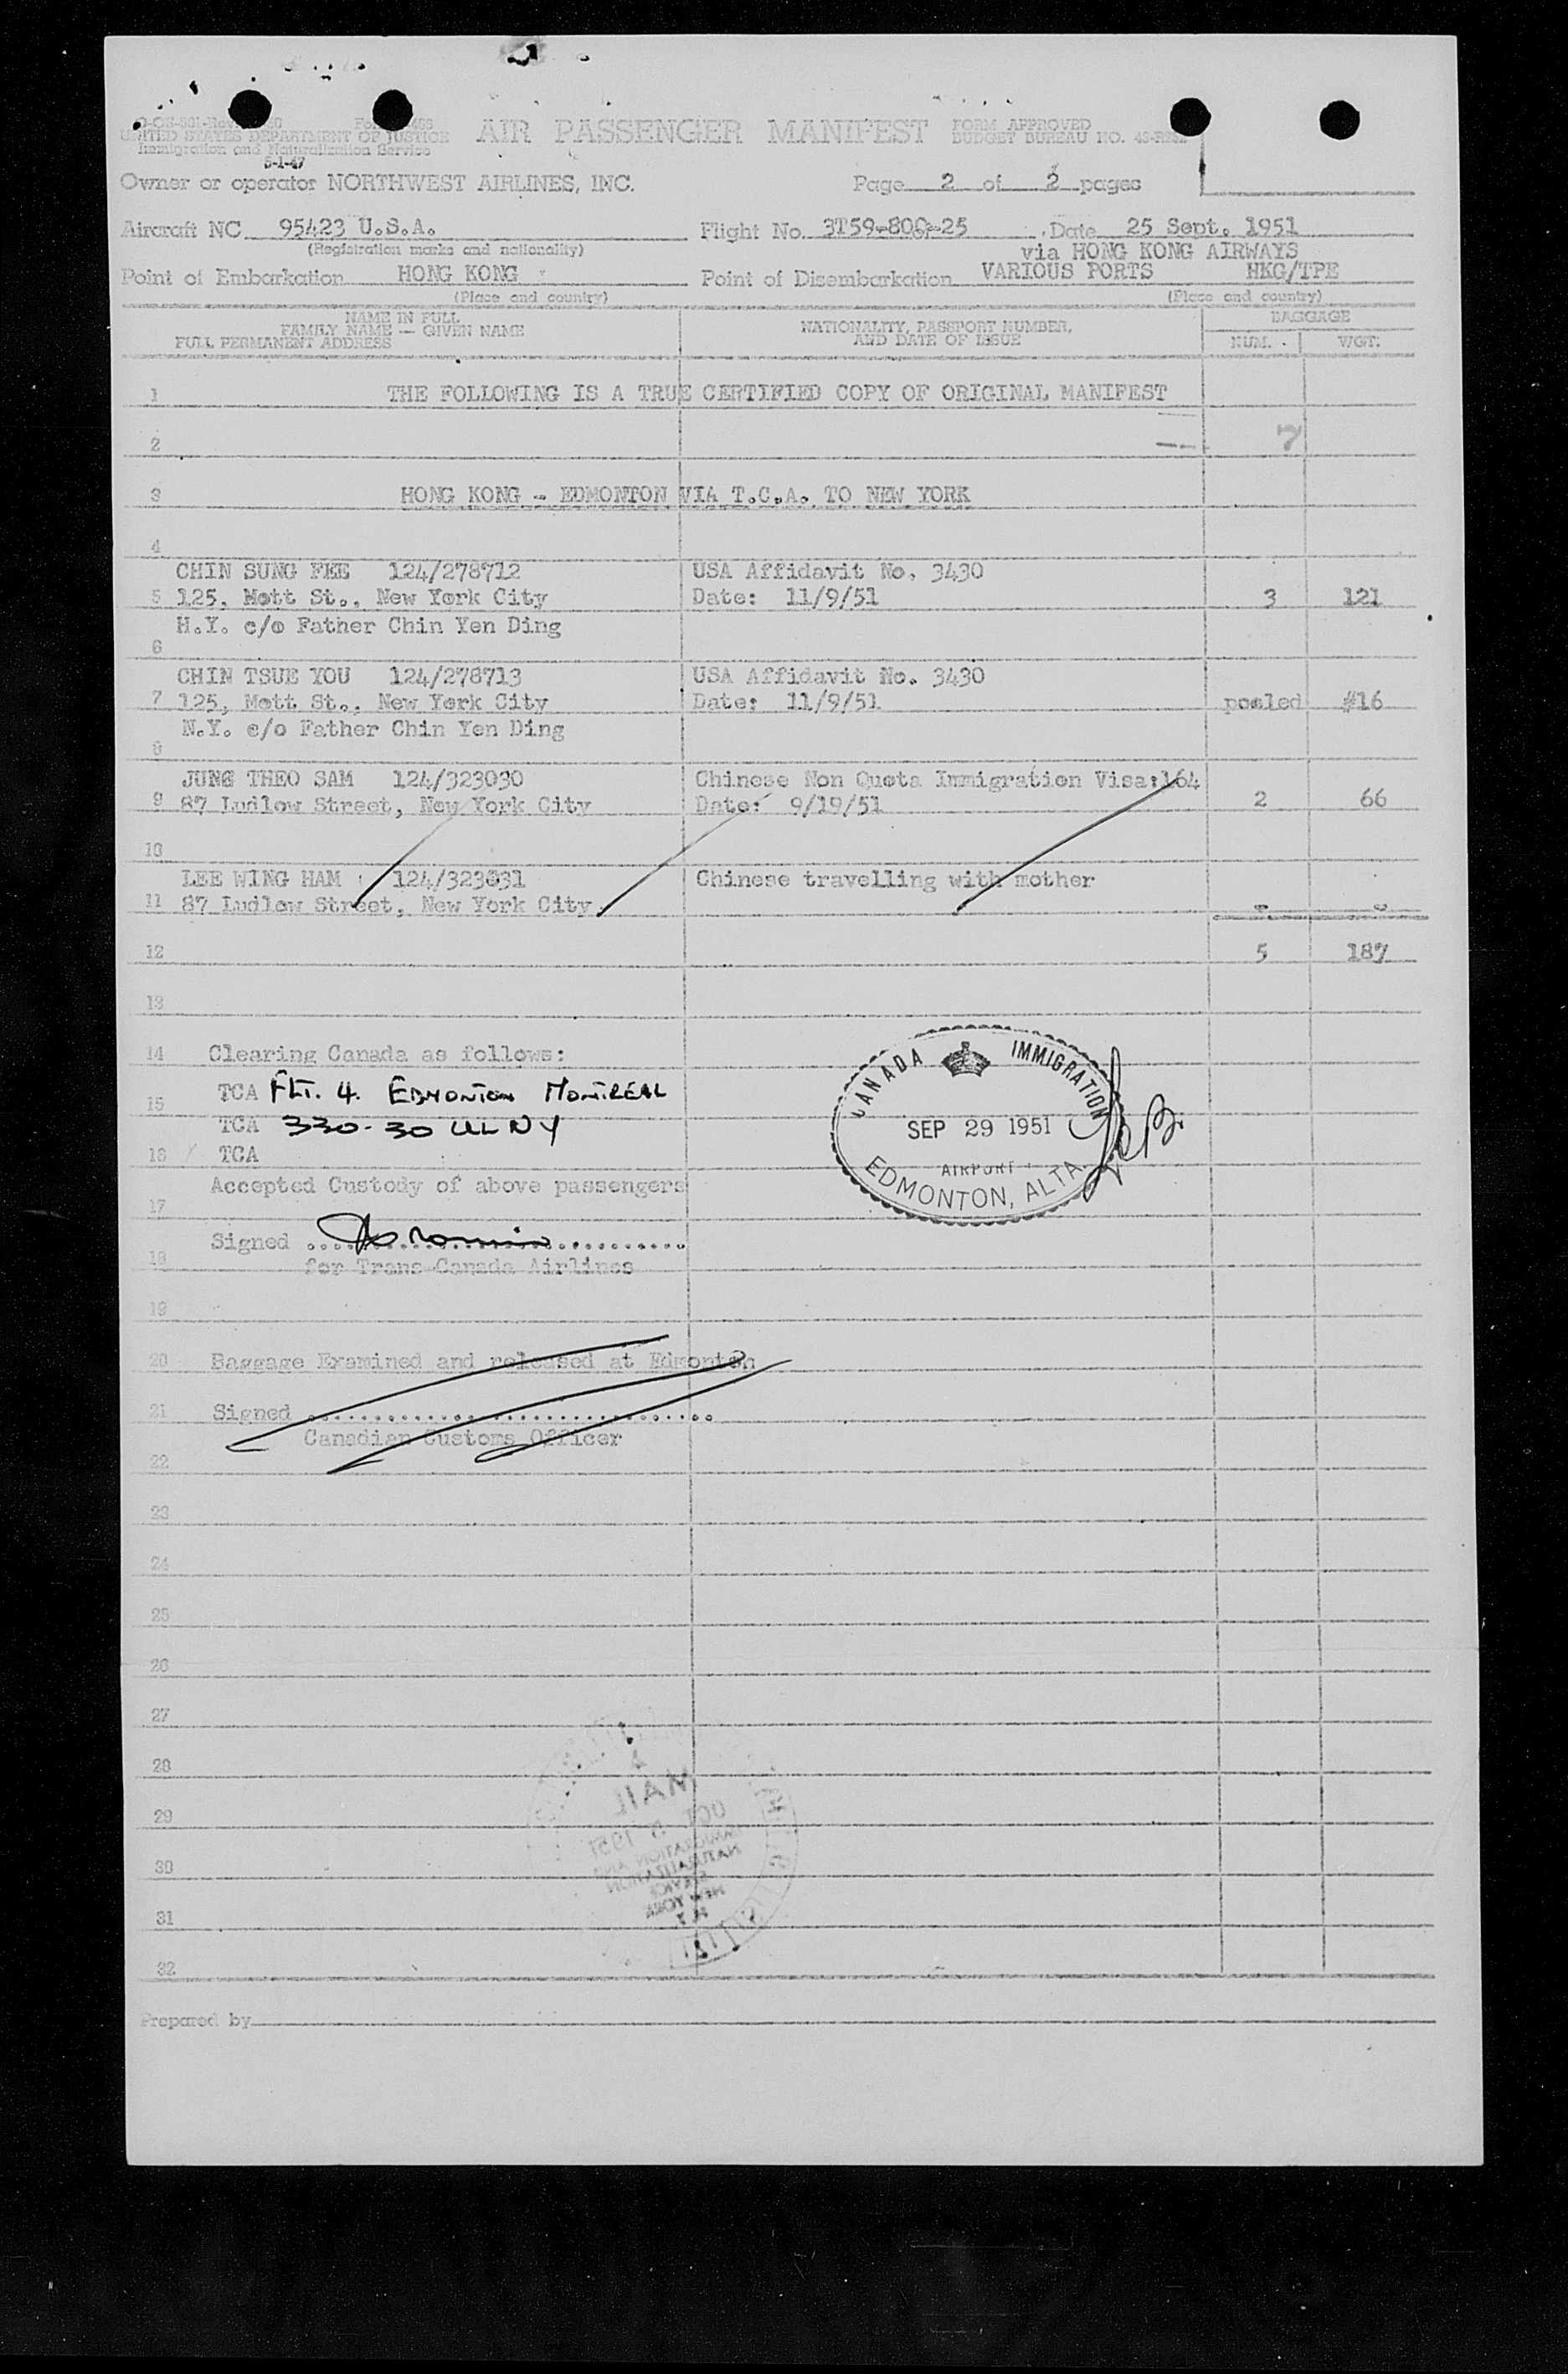 UNITED STATES DEPARTMENT OF JUSTICE
Immigration and Naturalization Service
5-1-47
AIR PASSENGER MANIFEST
FORM APPROVED
BUDGET BUREAU NO.
Owner or operator NORTHWEST AIRLINES, INC.
Page 2 of 2 pages
Aircraft NC 95423 U.S.A.
(Registration marks and nationality)
Flight No. 3T59-800-25
Date 25 Sept. 1951
via HONG KONG AIRWAYS
Point of Embarkation HONG KONG
(Place and country)
Point of Disembarkation VARIOUS PORTS HKG/TPE
(Place and country)
NAME IN FULL
FAMILY NAME — GIVEN NAME
FULL PERMANENT ADDRESS
NATIONALITY, PASSPORT NUMBER,
AND DATE OF ISSUE
BAGGAGE
NUM. WGT.
1 THE FOLLOWING IS A TRUE CERTIFIED COPY OF ORIGINAL MANIFEST
2 7
3 HONG KONG - EDMONTON VIA T.C.A. TO NEW YORK
4
CHIN SUNG FEE 124/278712 USA Affidavit No. 3430
5 125, Mott St., New York City Date: 11/9/51 3 121
H.Y. c/o Father Chin Yen Ding
6
CHIN TSUE YOU 124/278713 USA Affidavit No. 3430
7 125, Mott St., New York City Date: 11/9/51 pooled #16
N.Y. c/o Father Chin Yen Ding
8
JUNG THEO SAM 124/323030 Chinese Non Quota Immigration Visa:164
9 87 Ludlow Street, New York City Date: 9/19/51 2 66
10
LEE WING HAM 124/323031 Chinese travelling with mother
11 87 Ludlow Street, New York City - -
12 5 187
13
14 Clearing Canada as follows:
15 TCA FLT. 4. EDMONTON MONTREAL
TCA 330-30 UL NY
16 TCA
Accepted Custody of above passengers
17
Signed
18 for Trans Canada Airlines
19
CANADA IMMIGRATION
SEP 29 1951
AIRPORT
EDMONTON, ALTA
20 Baggage Examined and released at Edmonton
21 Signed
Canadian Customs Officer
22
23
24
25
26
27
28
MAIL
29
OCT 5 1951
IMMIGRATION AND
30
NATURALIZATION
SERVICE
NEW YORK
31
N.Y.
32
Prepared by